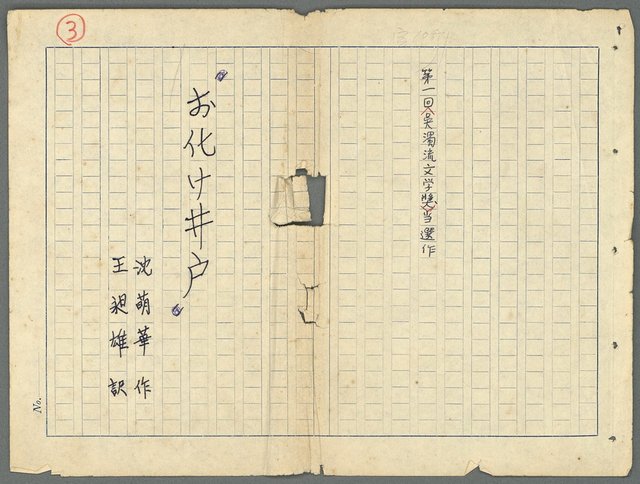 第一回吳濁流文学奬当選作
お化け井戸
沈萌華作
王昶雄訳
③
No.